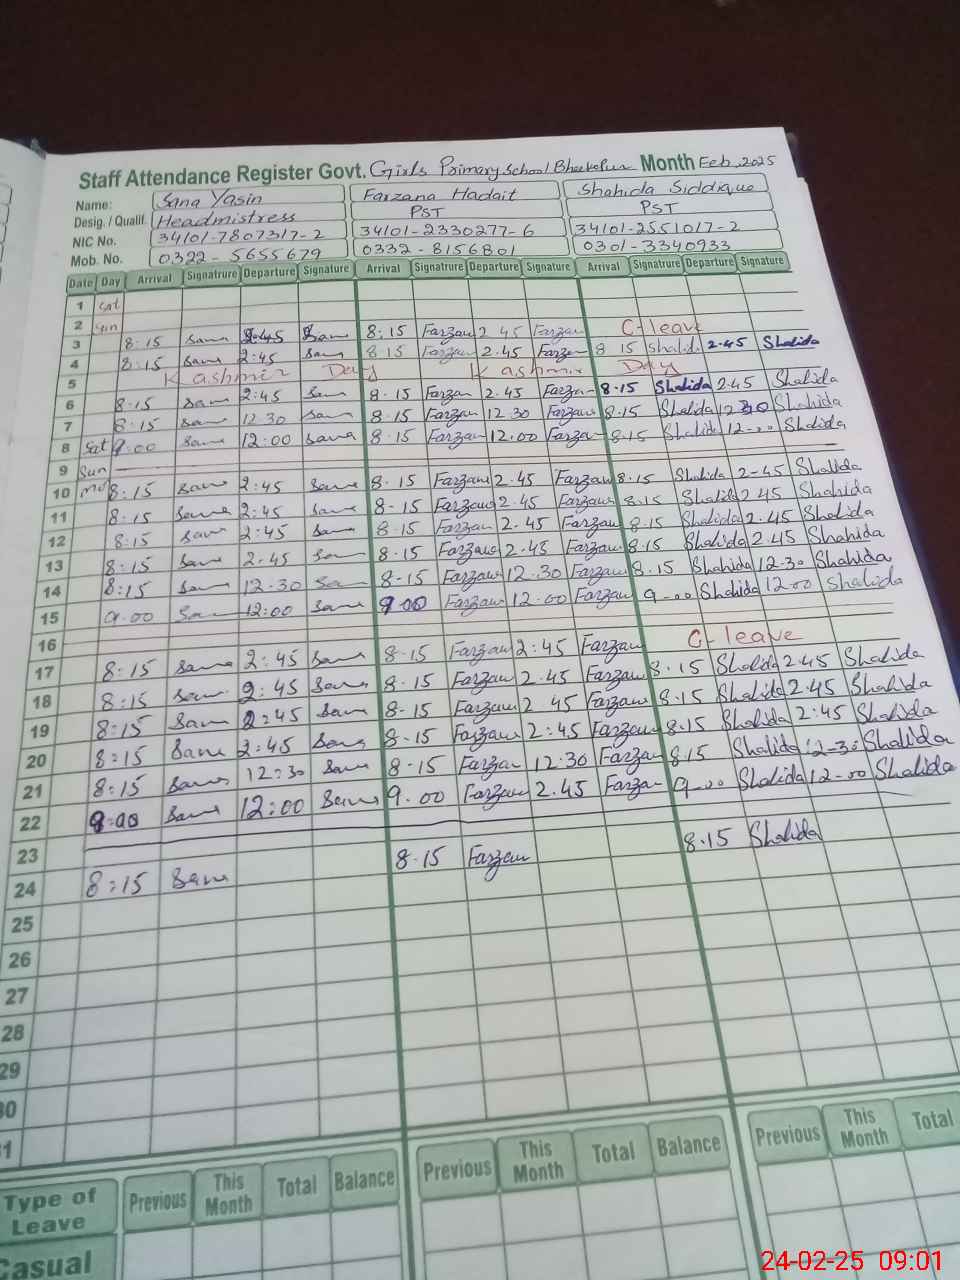 Staff Attendance Register Govt. Girls Primary School Month Feb, 2025
Name: Sana Yasin Farzana Hadait Shahida Siddique
Desig. / Qualif. Headmistress PST PST
NIC No. 34101-7807317-2 34101-2330277-6 34101-2551017-2
Mob. No. 0322-5655679 0332-8156801 0301-3340933
Date Day Arrival Signatrure Departure Signature Arrival Signatrure Departure Signature Arrival Signatrure Departure Signature
1 Sat
2 Sun
3 8:15 Sana 2:45 Sana 8:15 Farzan 2.45 Farzan C-leave
4 8:15 Sana 2:45 Sana 8 15 Farzan 2.45 Farzan 8 15 Shahida 2.45 Shahida
5 Kashmir Day Kashmir Day
6 8:15 Sana 2:45 Sana 8.15 Farzan 2.45 Farzan 8.15 Shahida 2.45 Shahida
7 8:15 Sana 12.30 Sana 8.15 Farzan 12.30 Farzan 8.15 Shahida 12 30 Shahida
8 Sat 9:00 Sana 12:00 Sana 8.15 Farzan 12.00 Farzan 8.15 Shahida 12-00 Shahida
9 Sun
10 Mo 8:15 Sana 2:45 Sana 8.15 Farzan 2.45 Farzan 8.15 Shahida 2-45 Shahida
11 8:15 Sana 2:45 Sana 8-15 Farzan 2.45 Farzan 8.15 Shahida 2 45 Shahida
12 8:15 Sana 2:45 Sana 8-15 Farzan 2.45 Farzan 8.15 Shahida 2.45 Shahida
13 8:15 Sana 2.45 Sana 8.15 Farzan 2.45 Farzan 8.15 Shahida 2.45 Shahida
14 8:15 Sana 12.30 Sana 8-15 Farzan 12.30 Farzan 8.15 Shahida 12.30 Shahida
15 9.00 Sana 12:00 Sana 9.00 Farzan 12.00 Farzan 9-00 Shahida 12-00 Shahida
16
17 8:15 Sana 2:45 Sana 8.15 Farzan 2:45 Farzan C-leave
18 8:15 Sana 2:45 Sana 8-15 Farzan 2.45 Farzan 8.15 Shahida 2.45 Shahida
19 8:15 Sana 2:45 Sana 8-15 Farzan 2 45 Farzan 8.15 Shahida 2.45 Shahida
20 8:15 Sana 2:45 Sana 8-15 Farzan 2:45 Farzan 8.15 Shahida 2:45 Shahida
21 8:15 Sana 12:30 Sana 8-15 Farzan 12.30 Farzan 8.15 Shahida 12-30 Shahida
22 9:00 Sana 12:00 Sana 9.00 Farzan 2.45 Farzan 9-00 Shahida 12-00 Shahida
23
24 8:15 Sana 8.15 Farzan 8.15 Shahida
25
26
27
28
29
30
31
Type of Leave Previous This Month Total Balance Previous This Month Total Balance Previous This Month Total
Casual
24-02-25 09:01